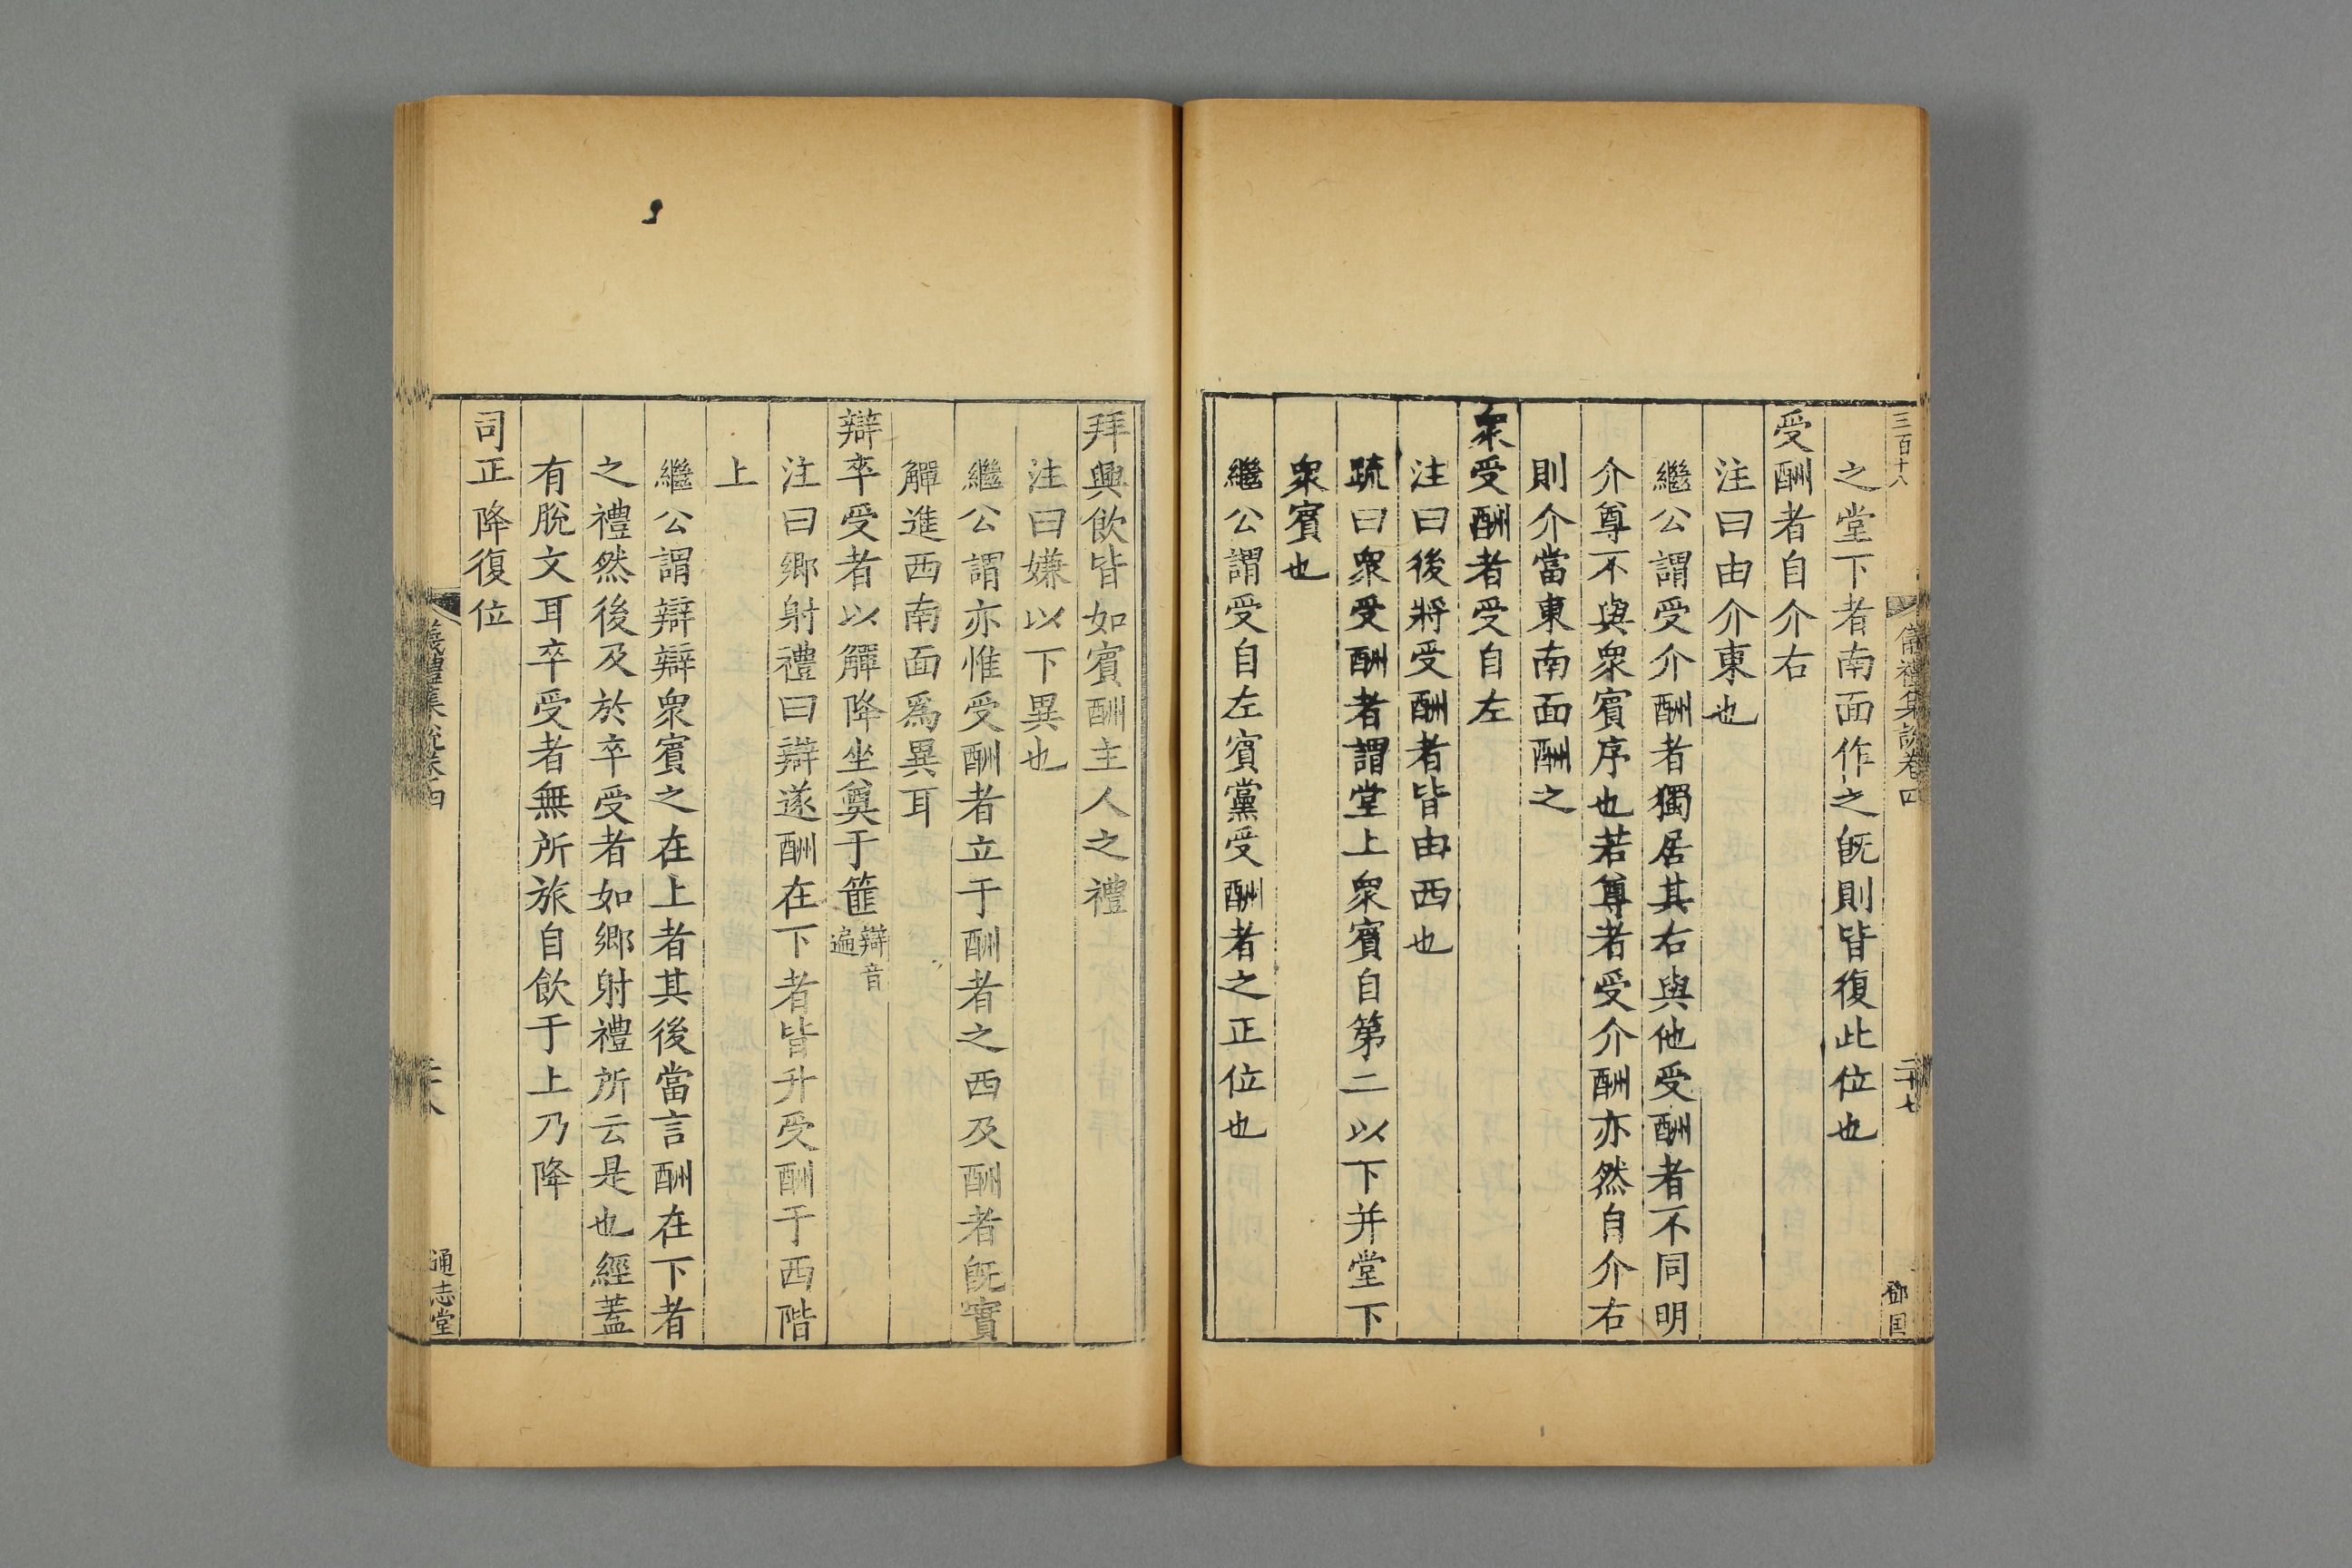 三百十八
儀禮集說卷四
二十七
鄧国
之堂下者南面作之旣則皆復此位也
受酬者自介右
注曰由介東也
繼公謂受介酬者獨居其右與他受酬者不同明
介尊不與衆賓序也若尊者受介酬亦然自介右
則介當東南面酬之
衆受酬者受自左
注曰後將受酬者皆由西也
疏曰衆受酬者謂堂上衆賓自第二以下并堂下
衆賓也
繼公謂受自左賓黨受酬者之正位也
拜興飲皆如賓酬主人之禮
注曰嫌以下異也
繼公謂亦惟受酬者立于酬者之西及酬者旣實
觶進西南面爲異耳
辯卒受者以觶降坐奠于篚辯音遍
注曰鄉射禮曰辯遂酬在下者皆升受酬于西階
上
繼公謂辯辯衆賓之在上者其後當言酬在下者
之禮然後及於卒受者如鄉射禮所云是也經蓋
有脫文耳卒受者無所旅自飲于上乃降
司正降復位
儀禮集說卷四
通志堂